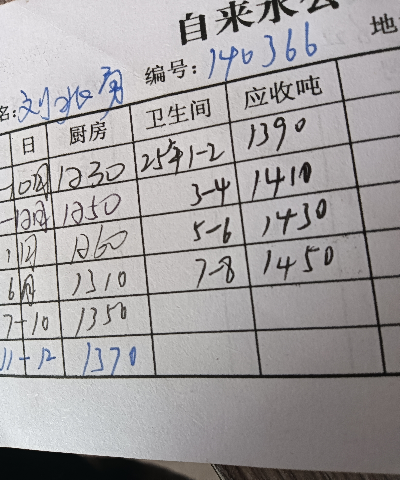 自来水公
名:刘 编号: 140366 地
日 厨房 卫生间 应收吨
10月 1230 25年1-2 1390
12月 1250 3-4 1410
1月 1260 5-6 1430
6月 1310 7-8 1450
7-10 1350
11-12 1370